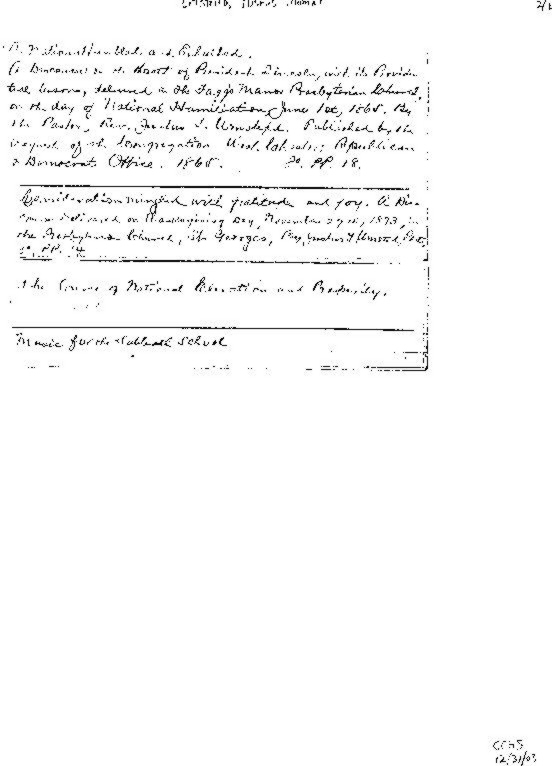 2/
A Nation Humbled and Exalted.
A Discourse on the Death of President Lincoln, with its Providen
tial lessons, delivered in the Faggs Manor Presbyterian Church,
on the day of National Humiliation June 1st, 1865. By
the Pastor, Rev. Justus T. Umsted. Published by the
request of the Congregation West Chester: Republican
& Democrat Office. 1865. 8o. PP. 18.
Consideration mingled with gratitude and joy. A Dis
course delivered on Thanksgiving Day, November 27th, 1873, in
the Presbyterian Church, St. Georges, By Justus T Umsted, Pastor
PP. 14
The Causes of National Elevation and Prosperity.
Music for the Sabbath School
CCHS
12/31/03